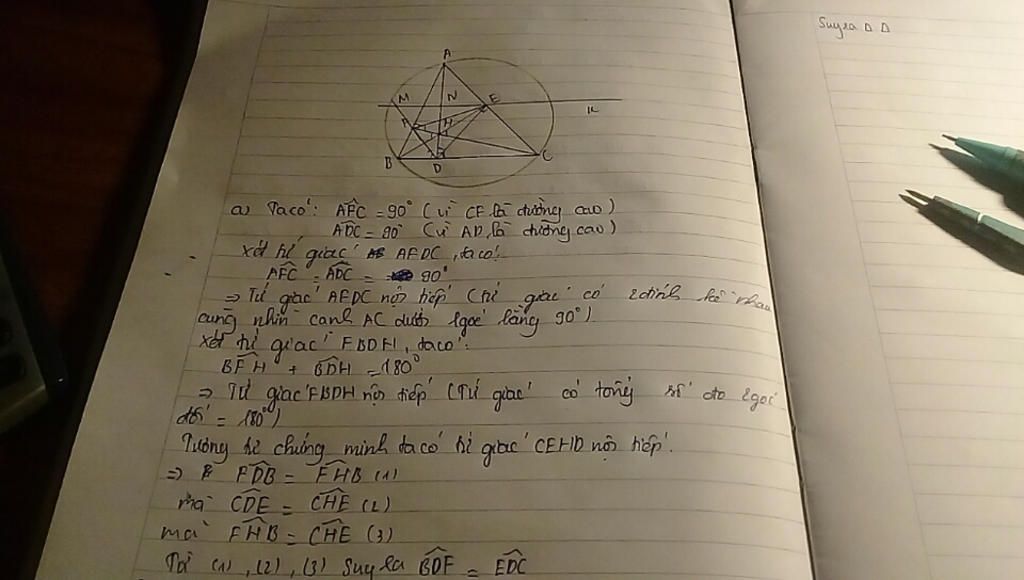 Suy ra Δ Δ
A
M N E
F H K
B D C
a) Ta có: AFC = 90° (vì CF là đường cao)
ADC = 90° (vì AD là đường cao)
Xét tứ giác AFDC, ta có:
AFC = ADC = 90°
⇒ Tứ giác AFDC nội tiếp (tứ giác có 2 đỉnh kề nhau
cùng nhìn cạnh AC dưới 1 góc bằng 90°)
Xét tứ giác FBDH, ta có:
BFH + BDH = 180°
⇒ Tứ giác FBDH nội tiếp (Tứ giác có tổng số đo 2 góc
đối = 180°)
Tương tự chứng minh ta có tứ giác CEHD nội tiếp.
⇒ FDB = FHB (1)
mà CDE = CHE (2)
mà FHB = CHE (3)
Từ (1), (2), (3) suy ra BDF = EDC